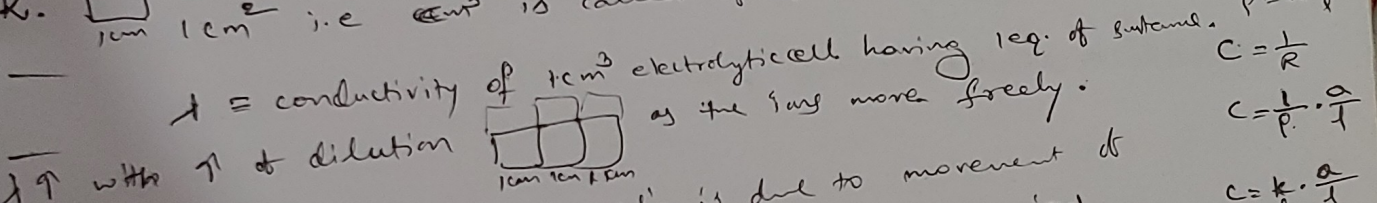 1cm 1cm² i.e is
λ = conductivity of 1cm³ electrolytic cell having 1eq. of
C = 1/R
λ↑ with ↑ of dilution as the ions move freely.
C = 1/ρ . a/l
1cm 1cm 1cm
is due to movement of
C = k . a/l